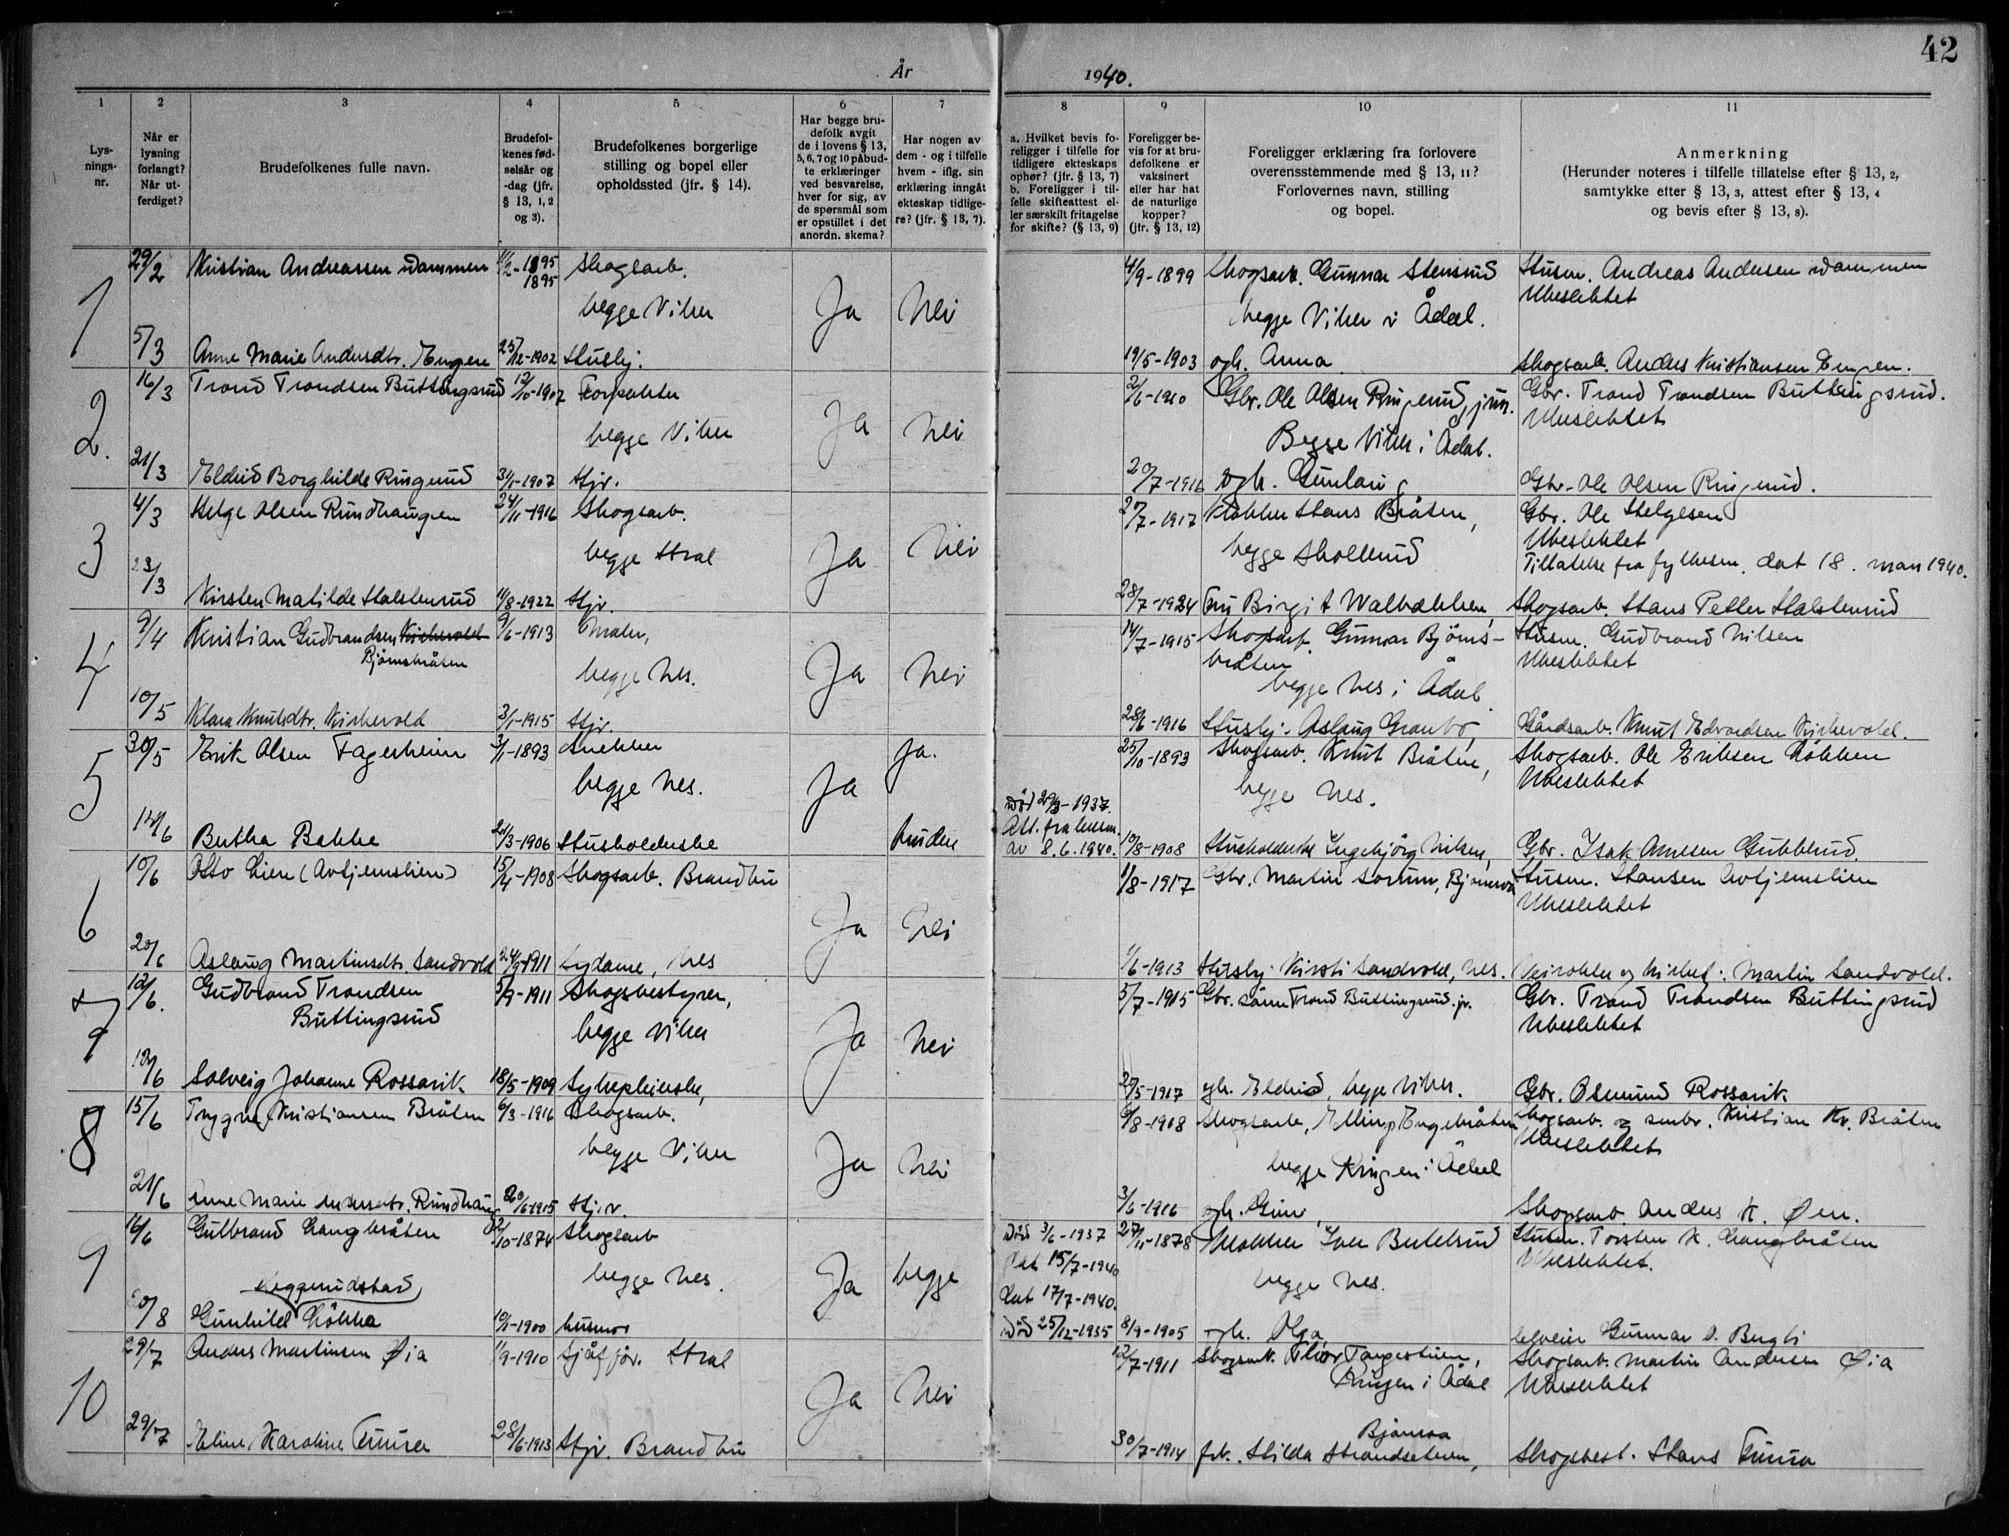 42
År 1940.
1 2 3 4 5 6 7 8 9 10 11
Lys-
nings-
nr.
Når er
lysning
forlangt?
Når ut-
ferdiget?
Brudefolkenes fulle navn.
Brudefol-
kenes fød-
selsår og
-dag (jfr.
§ 13, 1, 2
og 3).
Brudefolkenes borgerlige
stilling og bopel eller
opholdssted (jfr. § 14).
Har begge bru-
defolk avgit
de i lovens § 13,
5, 6, 7 og 10 påbud-
te erklæringer
ved besvarelse,
hver for sig, av
de spørsmål som
er opstillet i det
anordn. skema?
Har nogen av
dem - og i tilfelle
hvem - iflg. sin
erklæring inngått
ekteskap tidlige-
re? (jfr. § 13, 7).
a. Hvilket bevis fo-
religger i tilfelle for
tidligere ekteskaps
ophør? (jfr. § 13, 7)
b. Foreligger i til-
felle skifteattest el-
ler særskilt fritagelse
for skifte? (§ 13, 9)
Foreligger be-
vis for at bru-
defolkene er
vaksinert
eller har hat
de naturlige
kopper?
(jfr. § 13, 12)
Foreligger erklæring fra forlovere
overensstemmende med § 13, 11?
Forlovernes navn, stilling
og bopel.
Anmerkning
(Herunder noteres i tilfelle tillatelse efter § 13, 2,
samtykke efter § 13, 3, attest efter § 13, 4
og bevis efter § 13, 8).
1 29/2 Kristian Andreassen Dammen 11/2-1895 Skogsarb. 4/9-1899 Skogsarb. Gunnar Stensrud Husm. Andreas Andersen Dammen
1895 begge Viker Ja Nei begge Viker i Ådal. Ubeslektet
5/3 Anne Marie Andersdtr. Engene 25/12-1902 Hushj. 19/5-1903 og h. Anna Skogsarb. Anders Kristiansen Engen.
2. 16/3 Trond Trondsen Buttingsrud 12/10-1907 Forpakter 2/6-1910 Gbr. Ole Olsen Ringerud, jun. Gbr. Trond Trondsen Buttingsrud.
begge Viker Ja Nei Begge Viker i Ådal. Ubeslektet
21/3 Eldrid Borghilde Ringerud 31/1-1907 Hjv. 20/7-1916 og h. Gunlaug Gbr. Ole Olsen Ringerud.
3 4/3 Helge Olsen Rundhaugen 24/11-1916 Skogsarb. 27/7-1917 Klokker Hans Bråten, Gbr. Ole Helgesen
begge Stral Ja Nei begge Skollerud Ubeslektet
Tillatelse fra fylkesm. dat 18. mars 1940.
23/3 Kirsten Matilde Halstensrud 11/8-1922 Hjv. 28/7-1924 Fru Birgit Walbækken, Skogsarb. Hans Petter Halstensrud
4 9/4 Kristian Gudbrandsen Kirkevold 9/6-1913 Maler, 14/7-1915 Skogsarb. Gunnar Bjørns- Husm. Gudbrand Nilsen
Bjørnebråten begge Nes. Ja Nei bråten Ubeslektet
begge Nes i Ådal
10/5 Klara Knutsdtr. Kirkevold 3/1-1915 Hjv. 28/6-1916 Hushj. Aslaug Granbo, Gårdsarb. Knut Edvardsen Kirkevold.
5 30/5 Erik Olsen Fagerheim 3/1-1893 Snekker Ja. 25/10-1893 Skogsarb. Knut Bråten, Skogsarb. Ole Eriksen Løkken
begge Nes. Ja begge Nes. Ubeslektet
Død 29/3-1937.
Att. fra lensm.
14/6 Bertha Bakke 21/3-1906 Husholderske kvinden av 8.6.1940. 10/8-1908 Husholderske Ingebjørg Nilsen, Gbr. Isak Arnesen Gubberud.
6 10/6 Otto Lien (Avtjernslien) 15/4-1908 Skogsarb. Brandbu 1/8-1917 Gbr. Martin Sørum, Bjoneroa Husm. Hansen Avtjernslien
Ja Nei Ubeslektet
20/6 Aslaug Martinsdtr. Sandvold 24/9-1911 Sydame, Nes 1/6-1913 Hushj. Kirsti Sandvold, Nes. Veivokter og kirket. Martin Sandvold.
7 12/6. Gudbrand Trondsen 5/9-1911 Skogbestyrer, 5/7-1915 Gbr. sønn Trond Buttingsrud. jr. Gbr. Trond Trondsen Buttingsrud
Buttingsrud begge Viker Ja Nei Ubeslektet
12/6 Solveig Johanne Rossavik 18/5-1909 Sykepleierske, 29/5-1917 og h. Eldrid, begge Viker. Gbr. Osmund Rossavik
8 15/6 Trygve Kristiansen Bråten 6/3-1916 Skogsarb. 6/8-1908 Skogsarb. Elling Engebråten Skogsarb. og smbr. Kristian Kr. Bråten
begge Viker Ja Nei begge Ringen i Ådal Ubeslektet
21/6 Anne Marie Andersdtr. Rundhaug 20/6-1915 Hjv. 3/6-1916 og h. Guri Skogsarb. Anders K. Øen.
9 16/6 Gulbrand Langbråten 2/10-1874 Skogsarb Død 3/6-1937 27/11-1878 Klokker Iver Buttelsrud Husm. Torsten K. Langbråten
begge Nes. Ja begge dat 15/7-1940 begge Nes. Ubeslektet.
Heggerudstad dat 17/7-1940.
20/8 Gunhild Løkka 10/1-1900 husmor Død 25/12-1935 8/9-1905 og h. Olga Selveier Gunnar O. Bugli
10 29/7 Anders Martinsen Øia 11/9-1910 Sjåfør. Stral 12/7-1911 Skogsarb. Thor Torgestuen, Skogsarb. Martin Andersen Øia
Ja Nei Ringen i Ådal Ubeslektet
Bjoneroa
29/7 Eline Karoline Finna 28/6-1913 Hjv. Brandbu 30/7-1914 frk. Hilda Strandseteren, Skogsbest. Hans Finna